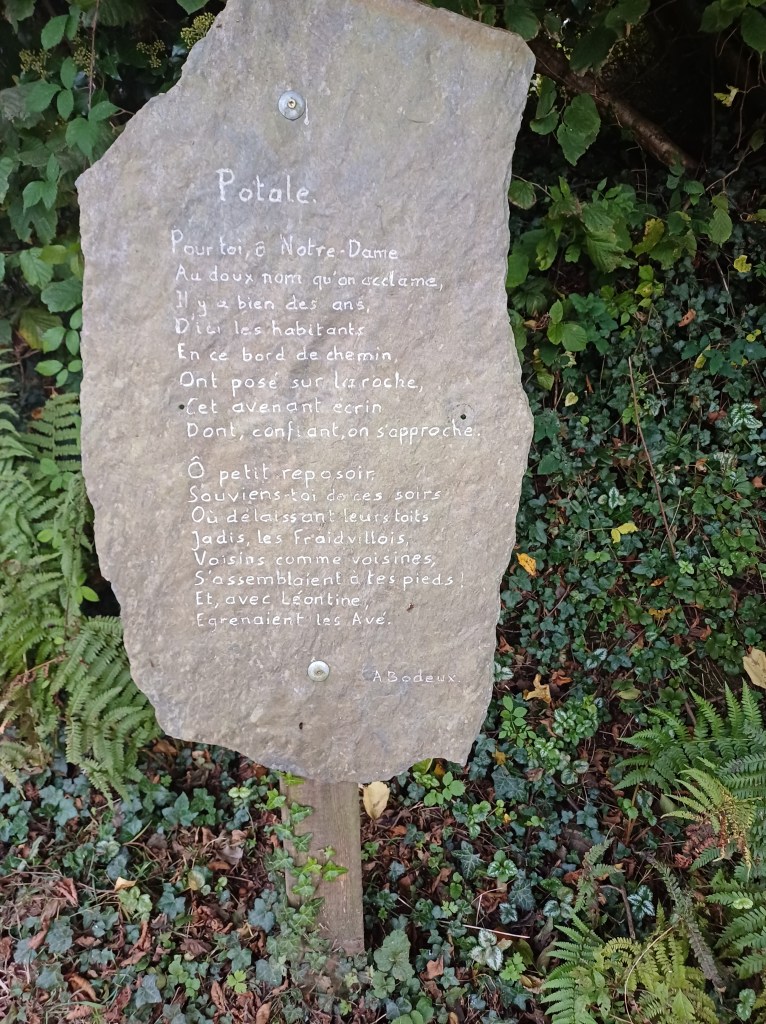 Potale.
Pour toi, ô Notre-Dame
Au doux nom qu'on acclame,
Il y a bien des ans,
D'ici les habitants
En ce bord de chemin,
Ont posé sur la roche,
Cet avenant écrin
Dont, confiant, on s'approche.
Ô petit reposoir
Souviens-toi de ces soirs
Où délaissant leurs toits
Jadis, les Fraidvillois,
Voisins comme voisines,
S'assemblaient à tes pieds!
Et, avec Léontine,
Egrenaient les Avé.
A Bodeux